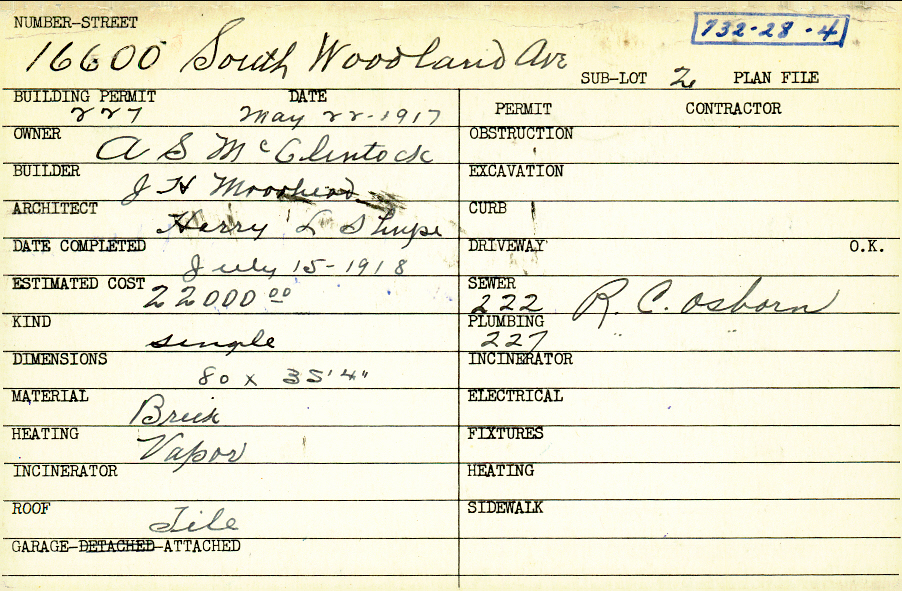 NUMBER-STREET
732-28-4
16600 South Woodland Ave
SUB-LOT 2 PLAN FILE
BUILDING PERMIT DATE
227 May 22-1917
OWNER
A S McClintock
BUILDER
J H Moorhead
ARCHITECT
Harry L Shupe
DATE COMPLETED
July 15-1918
ESTIMATED COST
22000 00
KIND
single
DIMENSIONS
80 x 35'4"
MATERIAL
Brick
HEATING
Vapor
INCINERATOR
ROOF
Tile
GARAGE-DETACHED-ATTACHED
PERMIT CONTRACTOR
OBSTRUCTION
EXCAVATION
CURB
DRIVEWAY O.K.
SEWER
222 R. C. Osborn
PLUMBING
227
INCINERATOR
ELECTRICAL
FIXTURES
HEATING
SIDEWALK